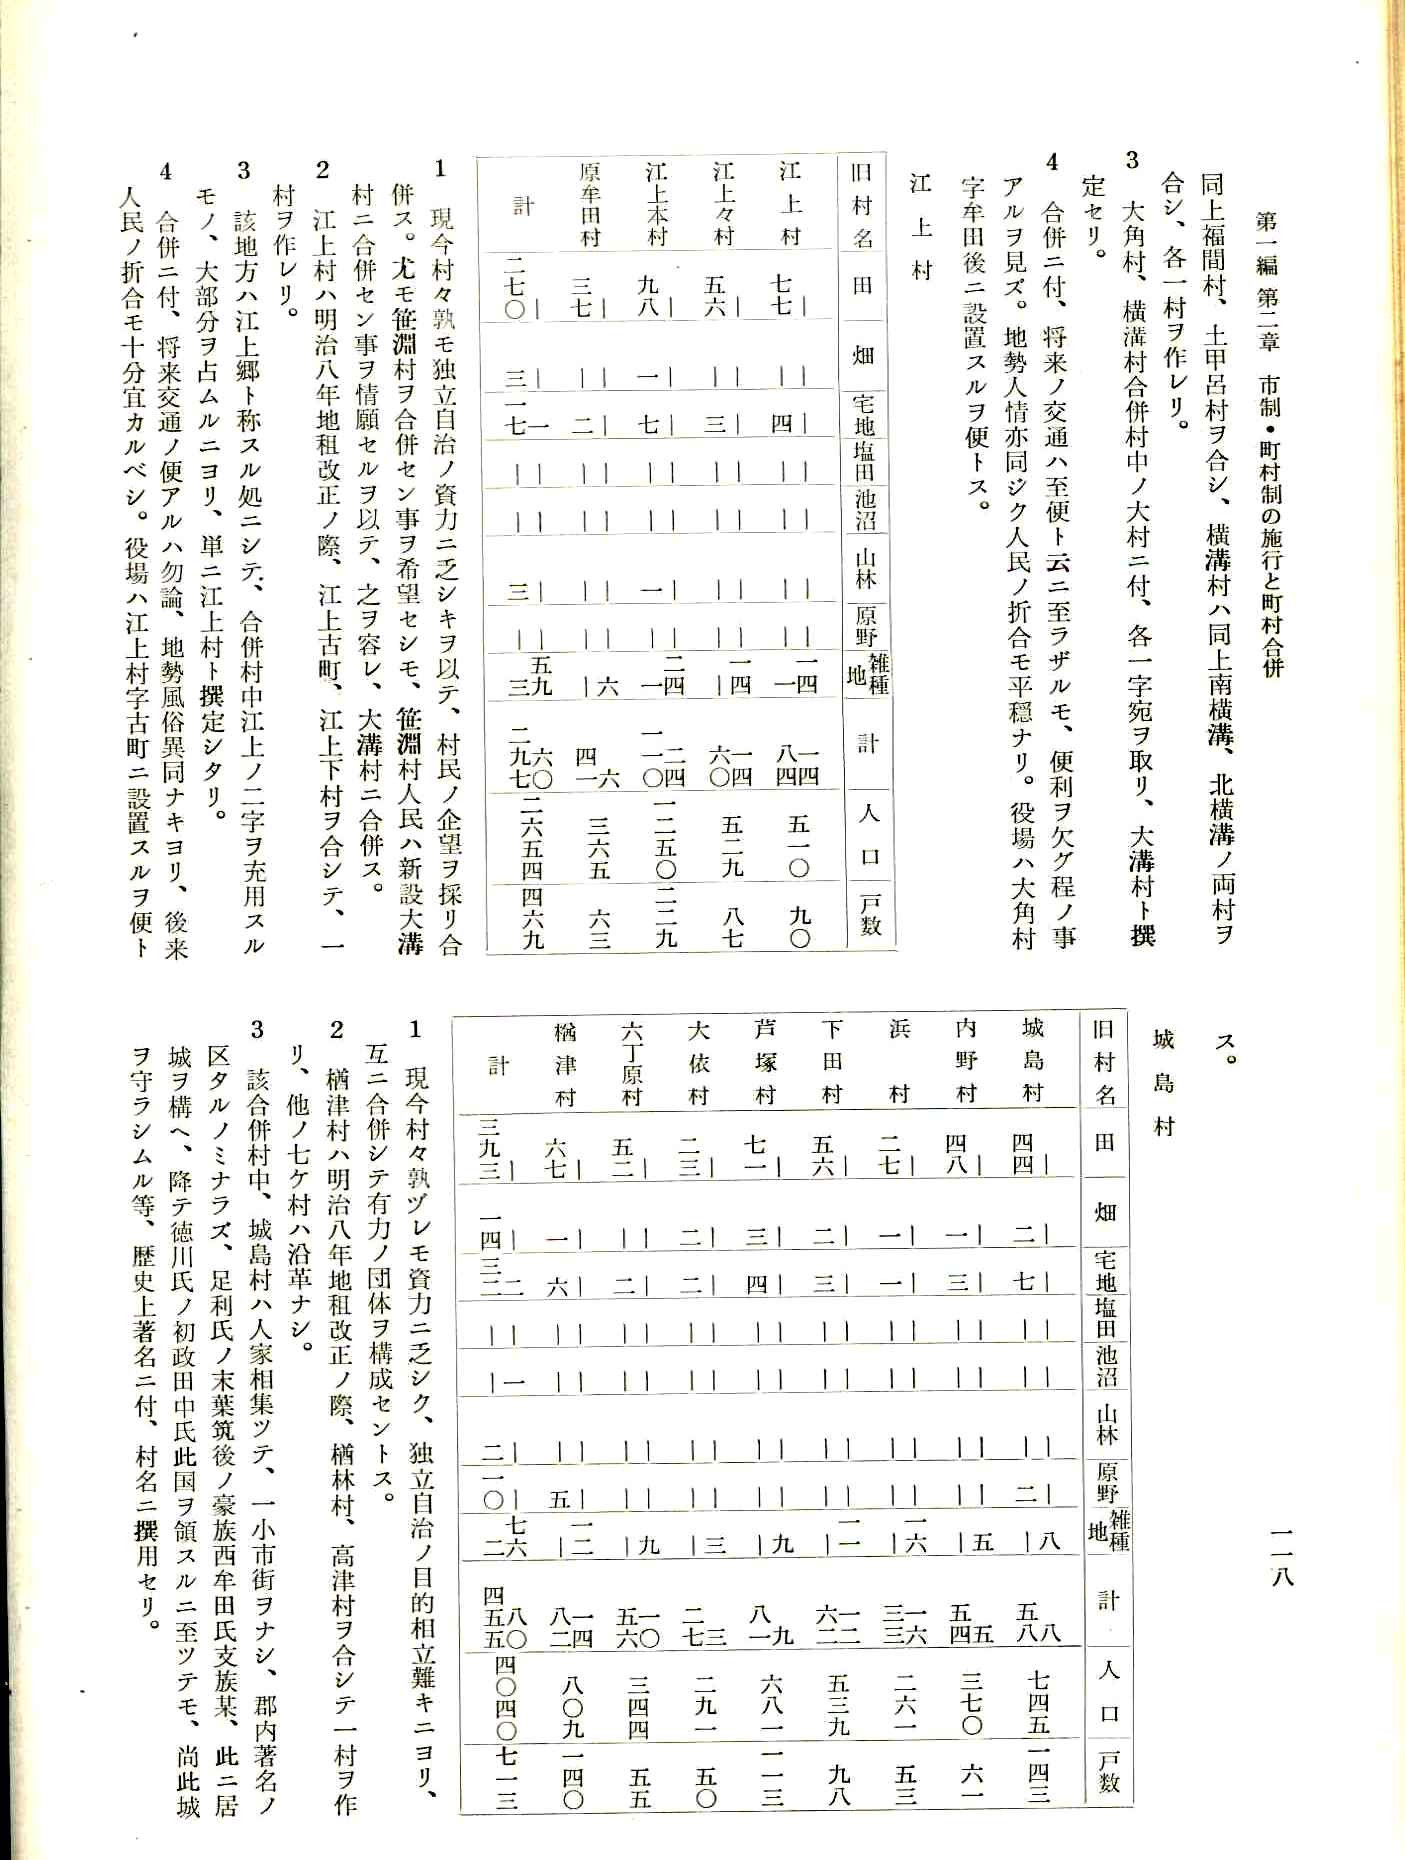 第一編 第二章　市制・町村制の施行と町村合併
一一八
同上福間村、土甲呂村ヲ合シ、横溝村ハ同上南横溝、北横溝ノ両村ヲ
合シ、各一村ヲ作レリ。
3　大角村、横溝村合併村中ノ大村ニ付、各一字宛ヲ取リ、大溝村ト撰
定セリ。
4　合併ニ付、将来ノ交通ハ至便ト云ニ至ラザルモ、便利ヲ欠グ程ノ事
アルヲ見ズ。地勢人情亦同ジク人民ノ折合モ平穏ナリ。役場ハ大角村
字牟田後ニ設置スルヲ便トス。
江上村
旧村名 田 畑 宅地 塩田 池沼 山林 原野 雑種地 計 人口 戸数
江上村 ｜七七 ｜｜ ｜四 ｜｜ ｜｜ ｜｜ ｜｜ 一四 一 一四 八四 五一〇 九〇
江上々村 ｜五六 ｜｜ ｜三 ｜｜ ｜｜ ｜｜ ｜｜ 一四｜ 一四 六〇 五二九 八七
江上本村 ｜九八 ｜一 ｜七 ｜｜ ｜｜ ｜一 ｜｜ 二四 一 二四 一一〇 一二五〇 二二九
原牟田村 ｜三七 ｜｜ ｜二 ｜｜ ｜｜ ｜｜ ｜｜ 六｜ 六 四一 三六五 六三
計 ｜二七〇 ｜三 一 一七 ｜｜ ｜｜ ｜三 ｜｜ 五九 三 六〇 二九七 二六五四 四六九
1　現今村々孰モ独立自治ノ資力ニ乏シキヲ以テ、村民ノ企望ヲ採リ合
併ス。尤モ笹淵村ヲ合併セン事ヲ希望セシモ、笹淵村人民ハ新設大溝
村ニ合併セン事ヲ情願セルヲ以テ、之ヲ容レ、大溝村ニ合併ス。
2　江上村ハ明治八年地租改正ノ際、江上古町、江上下村ヲ合シテ、一
村ヲ作レリ。
3　該地方ハ江上郷ト称スル処ニシテ、合併村中江上ノ二字ヲ充用スル
モノ、大部分ヲ占ムルニヨリ、単ニ江上村ト撰定シタリ。
4　合併ニ付、将来交通ノ便アルハ勿論、地勢風俗異同ナキヨリ、後来
人民ノ折合モ十分宜カルベシ。役場ハ江上村字古町ニ設置スルヲ便ト
ス。
城島村
旧村名 田 畑 宅地 塩田 池沼 山林 原野 雑種地 計 人口 戸数
城島村 ｜四四 ｜二 ｜七 ｜｜ ｜｜ ｜｜ ｜二 八｜ 八 五八 七四五 一四三
内野村 ｜四八 ｜一 ｜三 ｜｜ ｜｜ ｜｜ ｜｜ 五｜ 五 五四 三七〇 六一
浜村 ｜二七 ｜一 ｜一 ｜｜ ｜｜ ｜｜ ｜｜ 一六｜ 一六 三三 二六一 五三
下田村 ｜五六 ｜二 ｜三 ｜｜ ｜｜ ｜｜ ｜｜ 一一｜ 一二 六二 五三九 九八
芦塚村 ｜七一 ｜三 ｜四 ｜｜ ｜｜ ｜｜ ｜｜ 九｜ 九 八一 六八一 一一三
大依村 ｜二三 ｜二 ｜二 ｜｜ ｜｜ ｜｜ ｜｜ 三｜ 三 二七 二九一 五〇
六丁原村 ｜五二 ｜｜ ｜二 ｜｜ ｜｜ ｜｜ ｜｜ 九｜ 一〇 五六 三四四 五五
楢津村 ｜六七 ｜一 ｜六 ｜｜ ｜｜ ｜｜ ｜五 一二｜ 一四 八二 八〇九 一四〇
計 ｜三九三 ｜一四 二 三二 ｜｜ 一｜ ｜二 ｜一〇 七六 二 八〇 四五五 四〇四〇 七一三
1　現今村々孰ヅレモ資力ニ乏シク、独立自治ノ目的相立難キニヨリ、
互ニ合併シテ有力ノ団体ヲ構成セントス。
2　楢津村ハ明治八年地租改正ノ際、楢林村、高津村ヲ合シテ一村ヲ作
リ、他ノ七ケ村ハ沿革ナシ。
3　該合併村中、城島村ハ人家相集ツテ、一小市街ヲナシ、郡内著名ノ
区タルノミナラズ、足利氏ノ末葉筑後ノ豪族西牟田氏支族某、此ニ居
城ヲ構ヘ、降テ徳川氏ノ初政田中氏此国ヲ領スルニ至ツテモ、尚此城
ヲ守ラシムル等、歴史上著名ニ付、村名ニ撰用セリ。